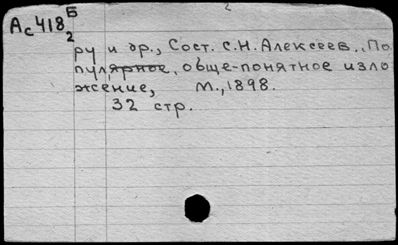 2
Ас418 Б
2
ру и др., Сост. С.Н. Алексеев. По
пулярное, обще-понятное изло
жение, М., 1898.
32 стр.